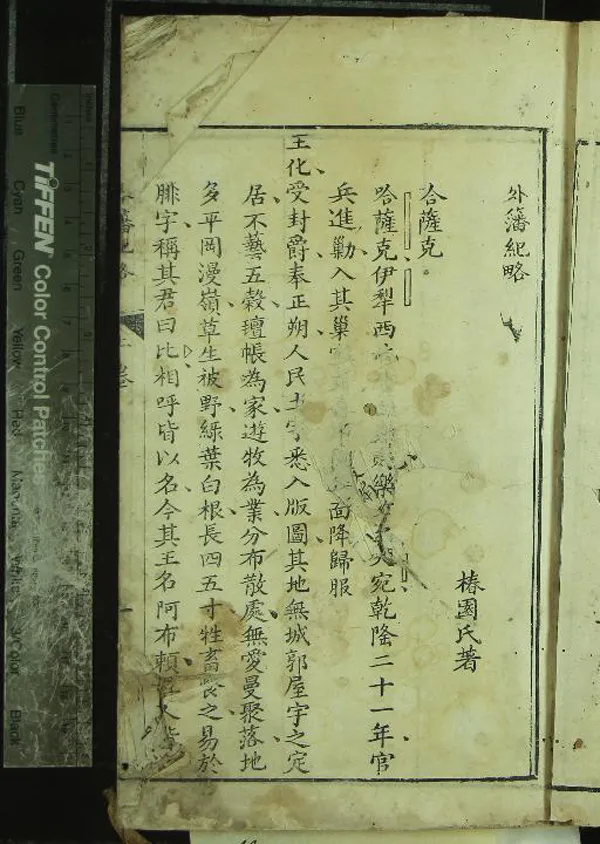 外藩紀略
椿園氏著
哈薩克
哈薩克伊犁西北 樂 宛乾隆二十一年官
兵進勦入其巢 面降歸服
王化受封爵奉正朔人民土宇悉入版圖其地無城郭屋宇之定
居不藝五穀氊帳為家遊牧為業分布散處無愛曼聚落地
多平岡漫嶺草生被野綠葉白根長四五寸牲畜食之易於
腓字稱其君曰比相呼皆以名今其王名阿布賴
卷
TIFFEN Color Control Patches
Centimetres
Blue
Cyan
Green
Yellow
Red
Magenta
White
3/Color
Black